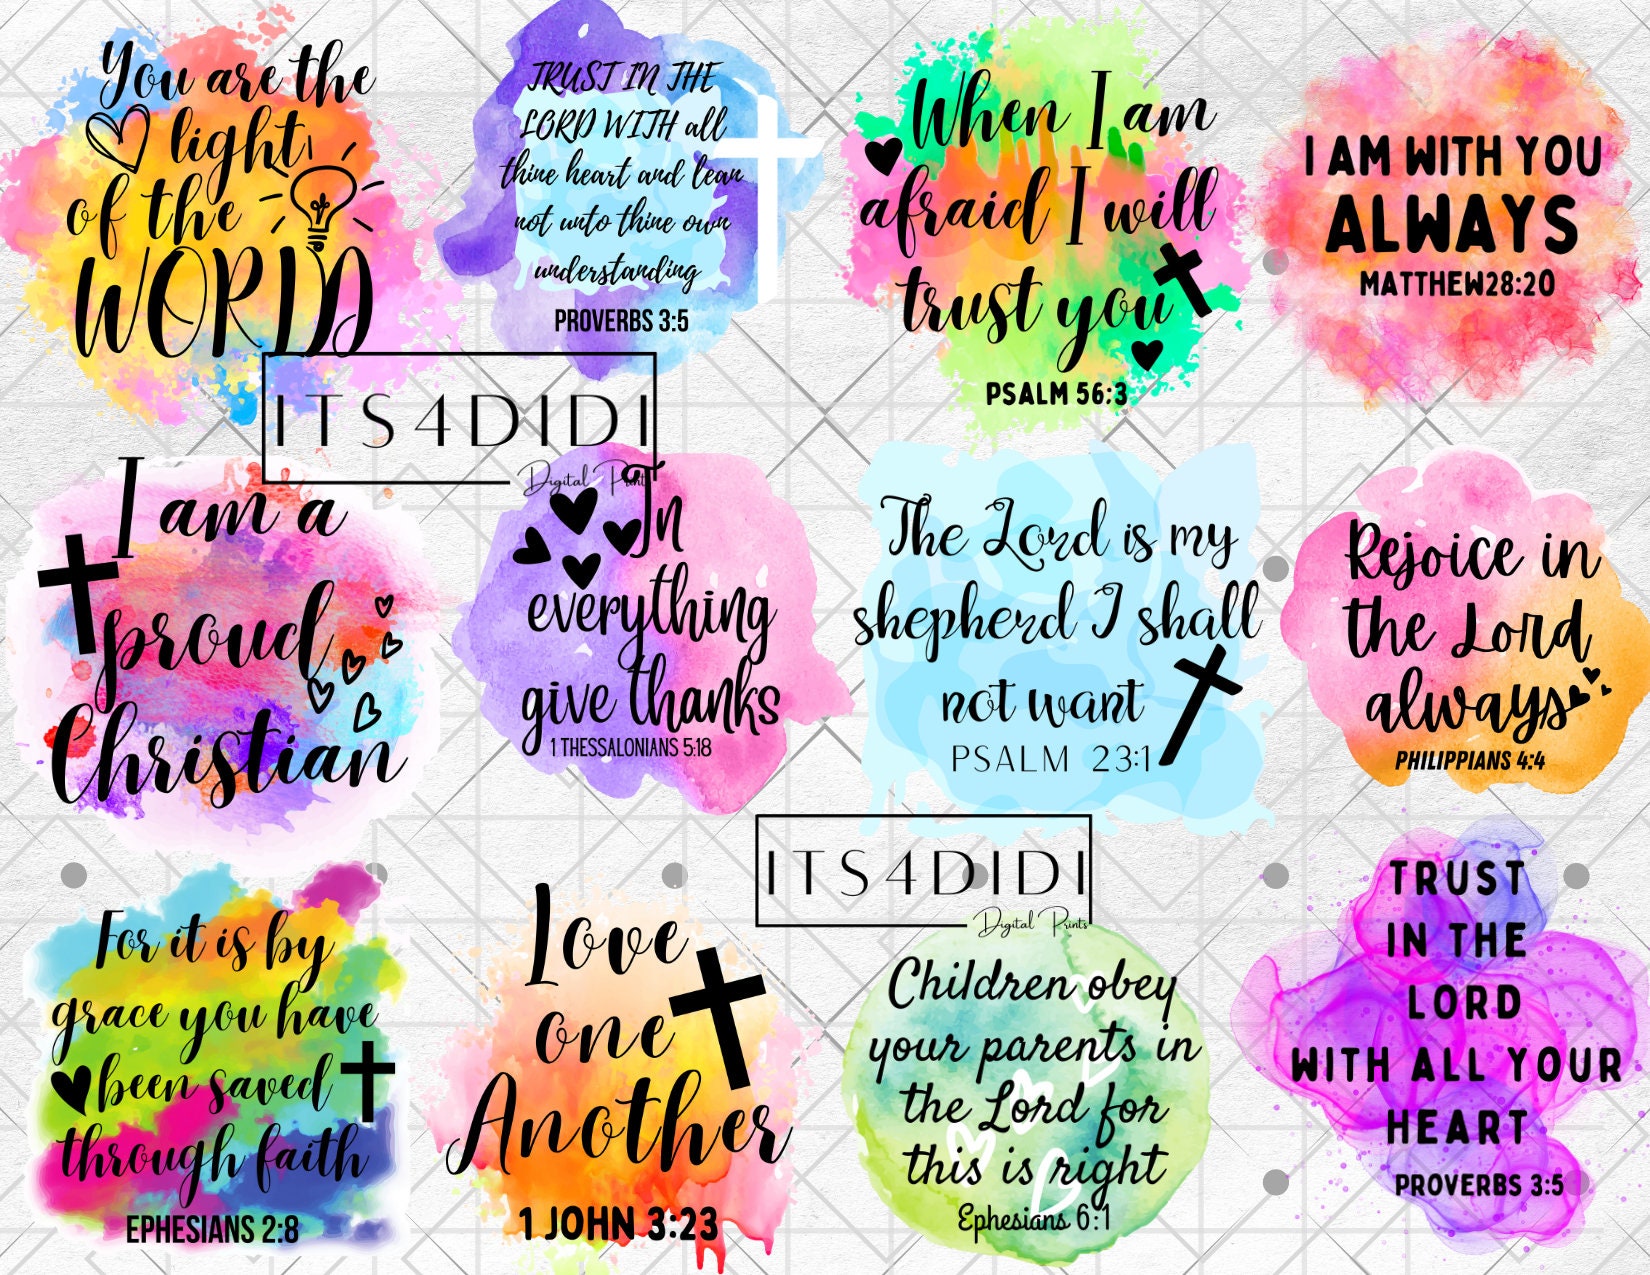 You are the
light
of the
WORLD
TRUST IN THE
LORD WITH all
thine heart and lean
not unto thine own
understanding
PROVERBS 3:5
When I am
afraid I will
trust you
PSALM 56:3
I AM WITH YOU
ALWAYS
MATTHEW28:20
ITS4DIDI
Digital Prints
I am a
proud
Christian
In
everything
give thanks
1 THESSALONIANS 5:18
The Lord is my
shepherd I shall
not want
PSALM 23:1
Rejoice in
the Lord
always
PHILIPPIANS 4:4
ITS4DIDI
Digital Prints
For it is by
grace you have
been saved
through faith
EPHESIANS 2:8
Love
one
Another
1 JOHN 3:23
Children obey
your parents in
the Lord for
this is right
Ephesians 6:1
TRUST
IN THE
LORD
WITH ALL YOUR
HEART
PROVERBS 3:5